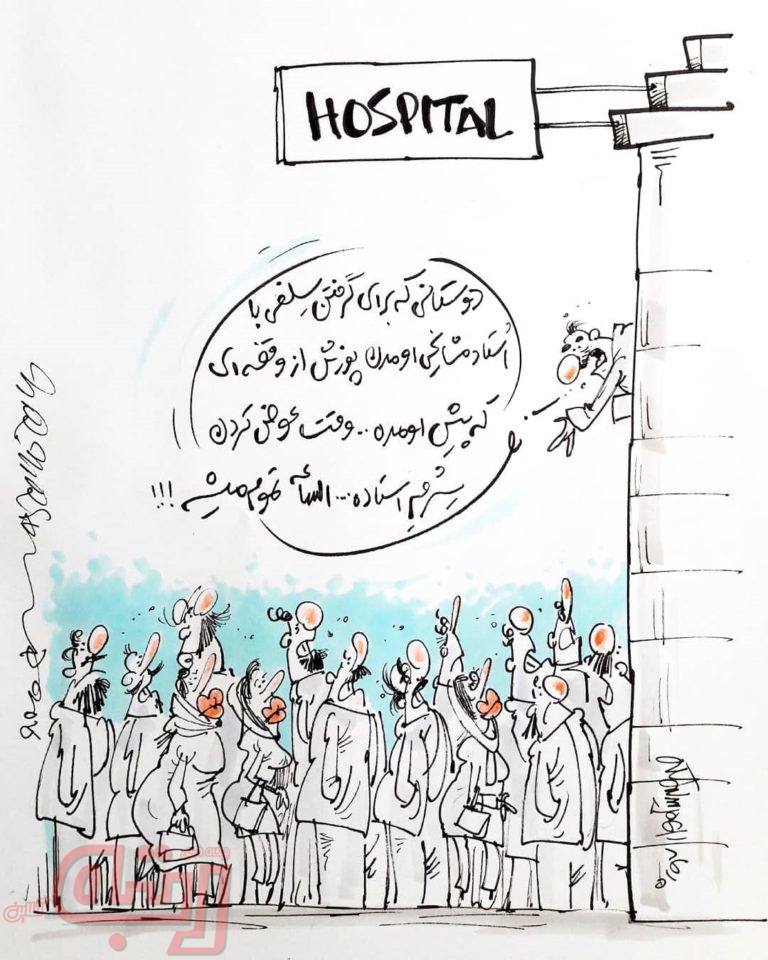 HOSPITAL
دوستانی که برای گرفتن سِلفی با
اُستاد مشایخی اومدن پوزش از وقفه ای
که پیش اومده... وقت عوض کردن
سِرُمِ استاده... الساعه تموم میشه !!!